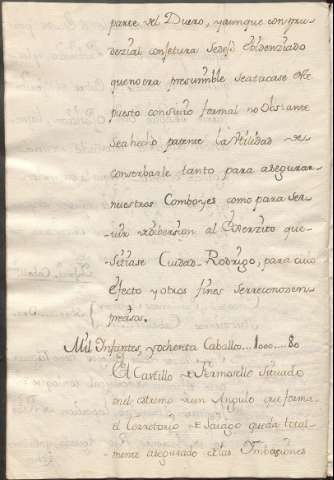 parte del Duero, y aunque con pru-
dezial conjetura se deso evidenziado
que no era presumible se atacase este
puesto con sitio formal no obstante
se a hecho patente la utilidad de
conserbarle, tanto para asegurar
nuestros Comboyes como para ser-
uir de dibersion al Exerzito que
sitiase Ciudad-Rodrigo, para cuio
efecto y otros fines se rreconozen
prezisos.
Mil Infantes, y ochenta Caballos... 1000... 80
El Castillo de Fermoselle situado
en el estremo de un Angulo que forma
el terretorio de Saiago queda total-
mente asegurado de las Imbasiones